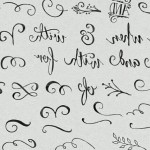 with & when
for with and
of &